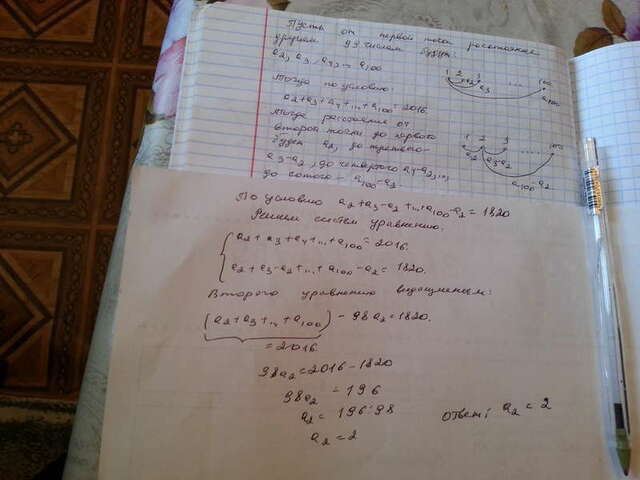 Пусть от первой точки расстояние
другим 99 числам будут:
a2, a3, a4, ... a100
Тогда по условию:
a2+a3+a4+...+a100=2016
Тогда расстояния от
второй точки до первого
будет a2, до третьего-
a3-a2, до четвертого a4-a2,...,
до сотого - a100-a2.
1 2 3 ... 100
a2 a3 a100
1 2 3 ... 100
a2 a3-a2
a100-a2
По условию a2+a3-a2+...+a100-a2=1820
Решим систем уравнению.
a2+a3+a4+...+a100=2016.
a2+a3-a2+...+a100-a2=1820.
Второго уравнению видоизменим:
(a2+a3+...+a100)-98a2=1820.
=2016
98a2=2016-1820
98a2=196
a2=196:98
a2=2
Ответ: a2=2